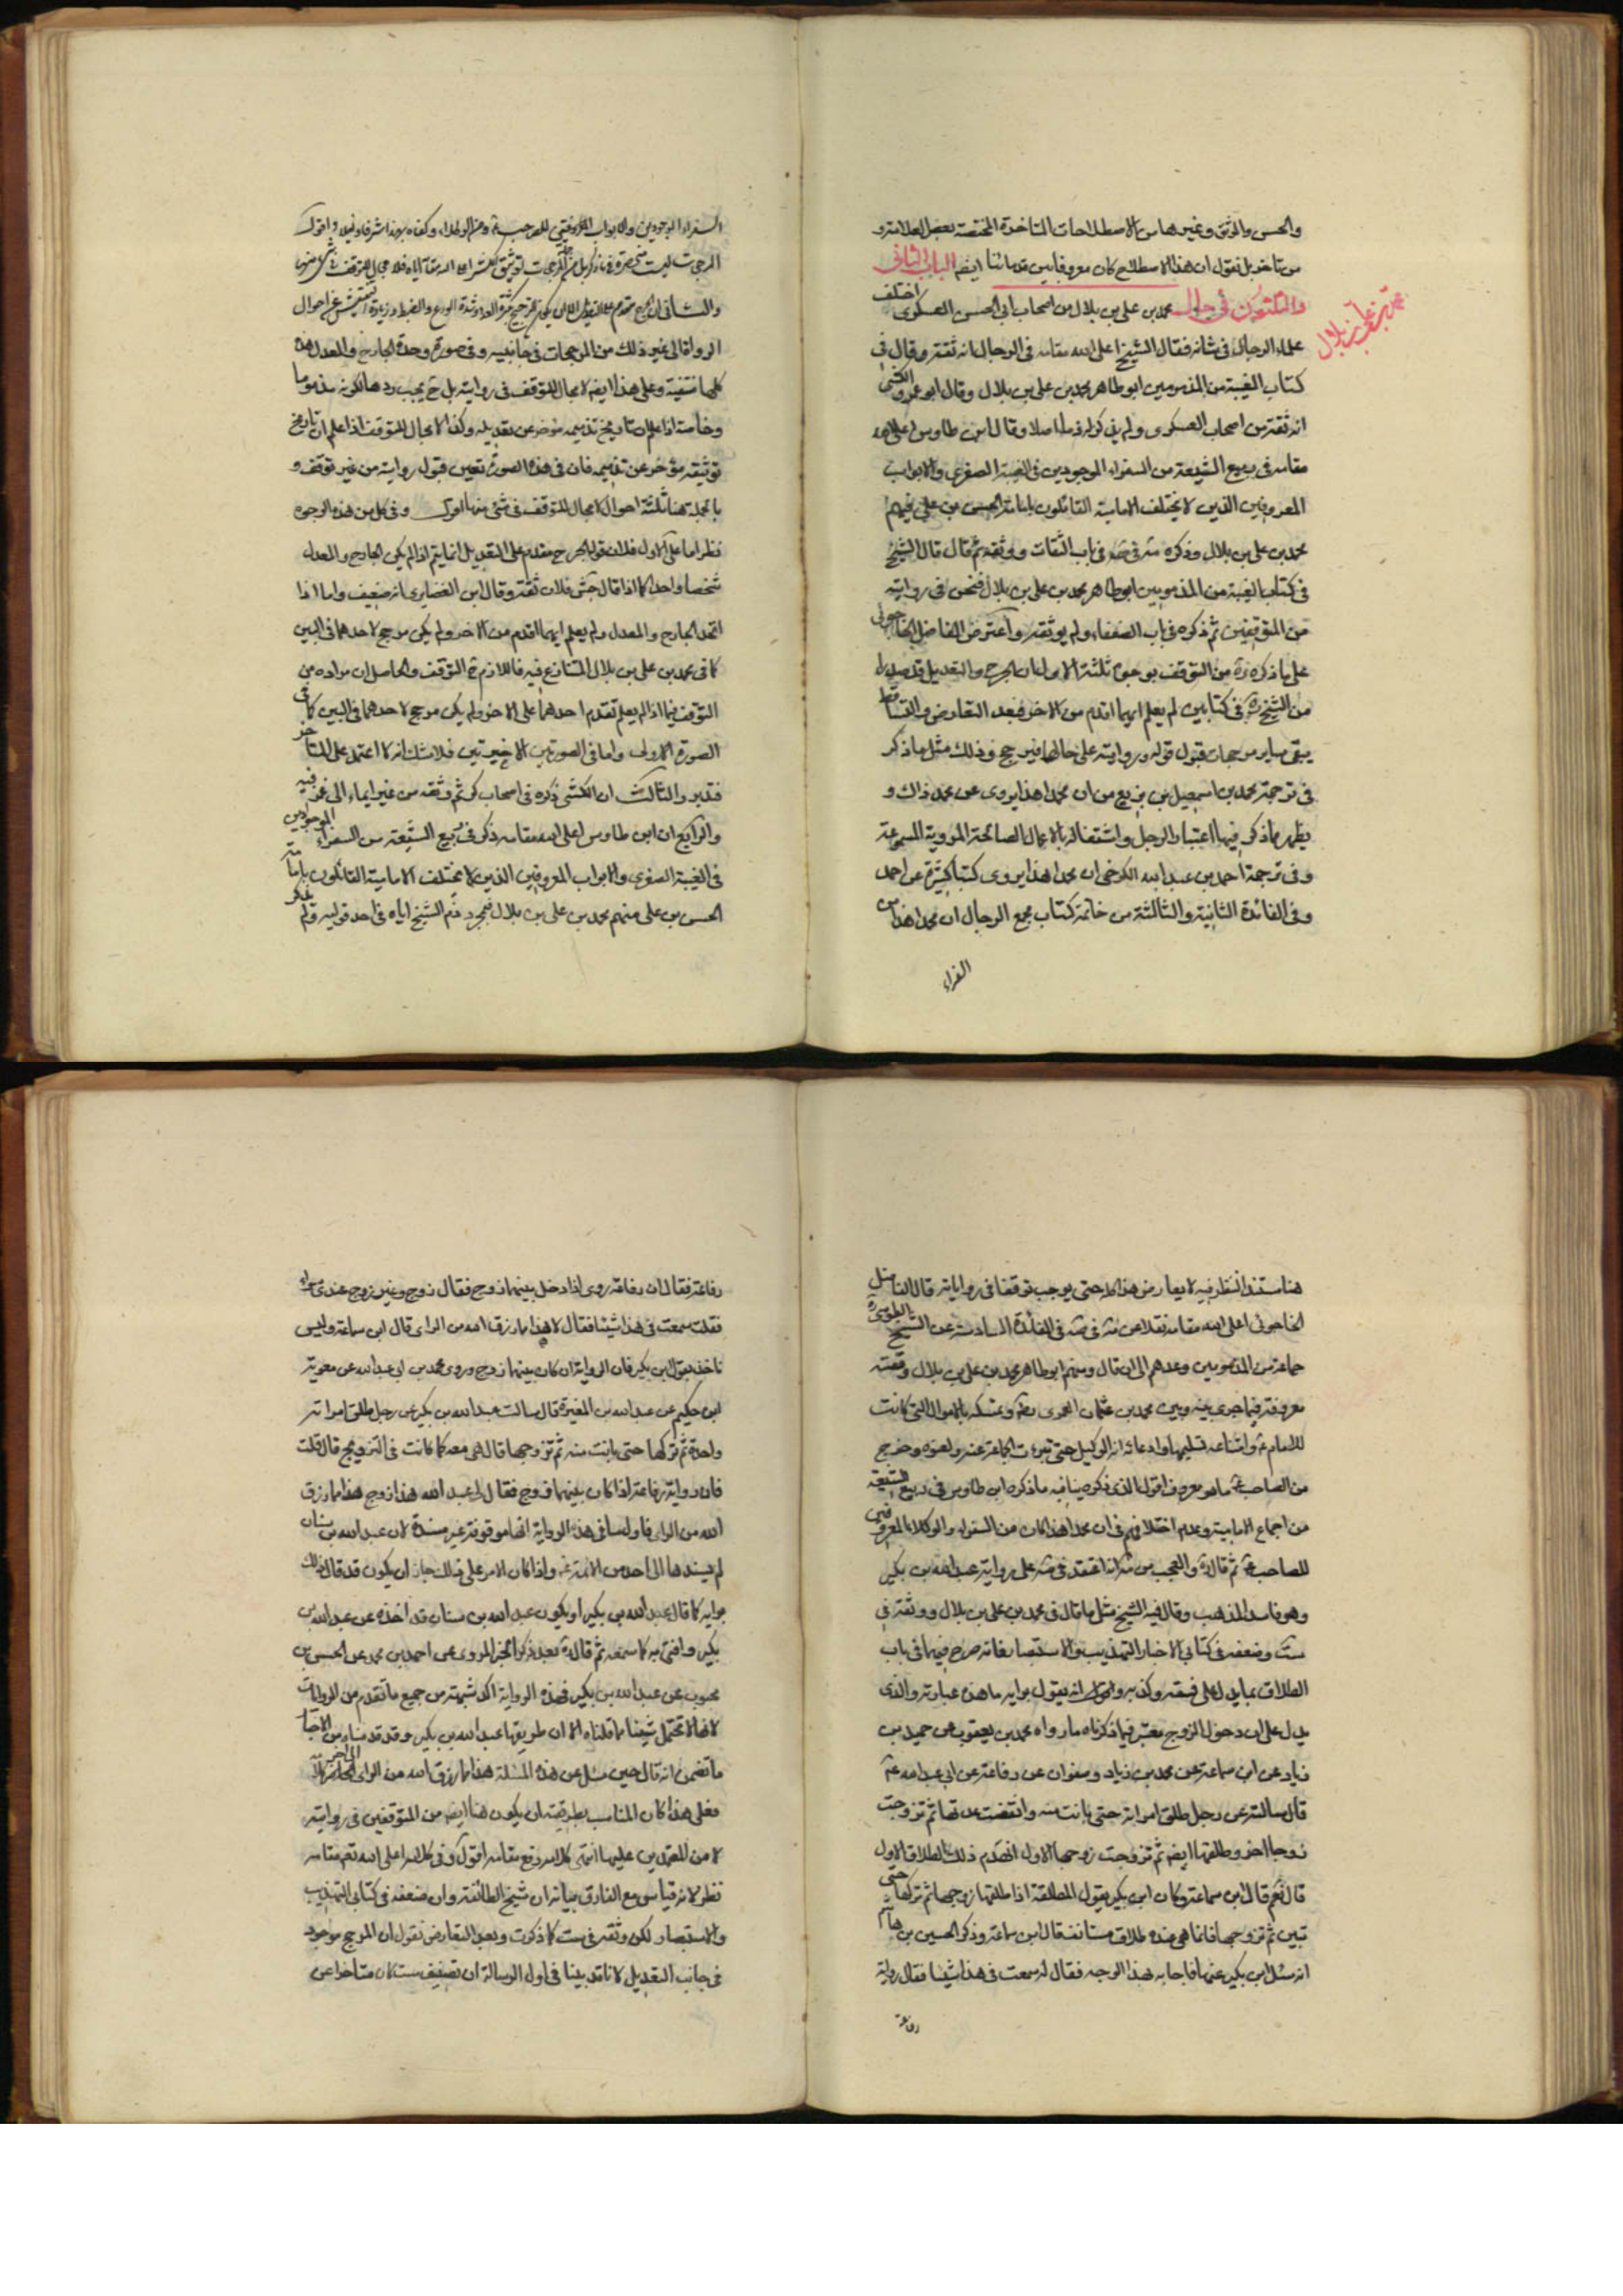 والحسن والموثق وغيرها من الاصطلاحات المتاخرة المختصة ببعض العلامة و
من تاخر بل نقول ان هذا الاصطلاح كان معروفا بين قدمائنا ايضم الباب الثانى
والثلثون فى حال محمد بن على بن بلال من اصحاب ابى الحسن العسكرى اختلف
محمد بن على بن بلال
علماء الرجال فى شانه فقال الشيخ اعلى الله مقامه فى الرجال انه ثقة وقال فى
كتاب الغيبة من المذمومين ابو طاهر محمد بن على بن بلال وقال ابو عمرو الكشى
انه ثقة من اصحاب العسكرى ولم يذكر له ذما اصلا وقال ابن طاوس اعلى الله
مقامه فى ربيع الشيعة من السفراء الموجودين فى الغيبة الصغرى والابواب
المعروفين الذين لا يختلف الامامية القائلون بامامة الحسن بن على فيهم
محمد بن على بن بلال وذكره مة فى صه فى باب الثقات ووثقه ثم قال قال الشيخ
فى كتاب الغيبة من المذمومين ابو طاهر محمد بن على بن بلال فنحن فى روايته
من المتوقفين ثم ذكره فى باب الضعفاء ولم يوثقه واعترض الفاضل الخاجوئى
على ما ذكره ره من التوقف بوجوه ثلثة الاول ان الجرح والتعديل قد صدرا
من الشيخ ره فى كتابين لم يعلم ايهما اقدم من الاخر فبعد التعارض والتساقط
يبقى ساير مرجحات قبول قوله وروايته على حالها فيرجح وذلك مثل ما ذكر
فى ترجمة محمد بن اسمعيل بن بزيع من ان محمدا هذا يروى عن محمد ذاك و
يظهر مما ذكر فيها اعتبار الرجل واشتغاله بالاعمال الصالحة المروية المسموعة
وفى ترجمة احمد بن عبد الله الكرخى ان محمدا هذا يروى كتبا كثيرة عن احمد
وفى الفائدة الثانية والثالثة من خاتمة كتاب مجمع الرجال ان محمدا هذا من
السفراء
السفراء الموجودين والابواب المعروفين للصاحب
والثانى ان الجرح مقدم على التعديل
الرواة الى غير ذلك من المرجحات فى جانبيه وفى صورة وحدة الجارح والمعدل هذه
كلها منتفية وعلى هذا ايضم لا مجال للتوقف فى روايته بل ح يجب ردها لكونه مذموما
وخاصة اذا علم ان تاريخ تذميمه مؤخر عن تعديله وكذا لا مجال للتوقف اذا علم ان تاريخ
توثيقه مؤخر عن تذميمه فان فى هذه الصورة تعين قبول روايته من غير توقف و
بالجملة هنا ثلثة احوال لا مجال للتوقف فى شئ منها اقول وفى كل من هذه الوجوه
نظر اما على الاول فلان قوله الجرح مقدم على التعديل انما يتم اذا لم يكن الجارح والمعدل
شخصا واحدا كما اذا قال جش فلان ثقة وقال ابن الغضايرى انه ضعيف واما اذا
اتحد الجارح والمعدل ولم يعلم ايهما اقدم من الاخر ولم يكن مرجح لاحدهما فى البين
كما فى محمد بن على بن بلال المتنازع فيه فاللازم ح التوقف والحاصل ان مراده من
التوقف فيما اذا لم يعلم تقدم احدهما على الاخر ولم يكن مرجح لاحدهما فى البين كما فى
الصورة الاولى واما فى الصورتين الاخيرتين فلا شك انه لا اعتمد على المتاخر
فتدبر والثالث ان الكشى ذكره فى اصحاب كر ثم وثقه من غير ايماء الى غمز فيه
والرابع ان ابن طاوس اعلى الله مقامه ذكر فى ربيع الشيعة من السفراء الموجودين
فى الغيبة الصغرى والابواب المعروفين الذين لا تختلف الامامية القائلون بامامة
الحسن بن على منهم محمد بن على بن بلال فمجرد ذم الشيخ اياه فى احد قوليه ولم يذكر
هنا مستند النظر فيه لا يعارض هذا كله حتى يوجب توقفنا فى رواياته قال الفاضل
الخاجوئى اعلى الله مقامه نقلا عن مة فى صه فى الفائدة السادسة عن الشيخ الطوسى ره
جماعة من المذمومين وعدهم الى ان قال ومنهم ابو طاهر محمد بن على بن بلال وقصته
معروفة فيما جرى بينه وبين محمد بن عثمان العمرى وتمسكه بالاموال التى كانت
للامام وامتناعه تسليمها وادعائه انه الوكيل حتى تبرءت الجماعة عنه ولعنوه وخرج
من الصاحب ما هو معروف اقول الذى ذكره ينافيه ما ذكره ابن طاوس فى ربيع الشيعة
من اجماع الامامية وعدم اختلافهم فى ان محمدا هذا كان من السفراء والوكلاء المعروفين
للصاحب ثم قال ره والعجب من مة انه اعتمد فى صه على رواية عبد الله بن بكير
وهو فاسد المذهب وقال فيه الشيخ مثل ما قال فى محمد بن على بن بلال ووثقه فى
ست وضعفه فى كتابى الاخبار التهذيب والاستبصار فانه صرح فيهما فى باب
الطلاق بما يدل على فسقه وكذبه وانه يقول برايه ما هذه عبارته والذى
يدل على ان دخول الزوج معتبر فيما ذكرناه ما رواه محمد بن يعقوب عن حميد بن
زياد عن ابن سماعة عن محمد بن زياد وصفوان عن رفاعة عن ابى عبد الله ع
قال سالته عن رجل طلق امراته حتى بانت منه وانقضت عدتها ثم تزوجت
زوجا اخر وطلقها ايضم ثم تزوجت زوجها الاول انهدم ذلك الطلاق الاول
قال نعم قال ابن سماعة وكان ابن بكير يقول المطلقة اذا طلقها زوجها ثم تركها حتى
تبين ثم تزوجها فانما هى عنده طلاق مستانف قال ابن سماعة وذكر الحسين بن هاشم
انه سئل ابن بكير عنها فاجابه بهذا الوجه فقال له سمعت فى هذا شيئا فقال رواية
رفاعة
رفاعة فقال ان رفاعة روى اذا دخل بينهما زوج فقال زوج وغير زوج عندى سواء
فقلت سمعت فى هذا شيئا فقال لا هذا مما رزق الله من الراى قال ابن سماعة وليس
ناخذ بقول ابن بكير فان الرواية ان كان بينهما زوج وروى محمد بن ابى عبد الله عن معوية
ابن حكيم عن عبد الله بن المغيرة قال سالت عبد الله بن بكير عن رجل طلق امراته
واحدة ثم تركها حتى بانت منه ثم تزوجها قال هى معه كما كانت فى التزويج قال قلت
فان رواية رفاعة اذا كان بينهما زوج فقال لى عبد الله هذا زوج هذا مما رزق
الله من الراى فاول ما فى هذه الرواية انها موقوفة غير مسندة لان عبد الله بن سنان
لم يسندها الى احد من الائمة ع واذا كان الامر على ذلك جاز ان يكون قد قال ذلك
برايه كما قال عبد الله بن بكير او يكون عبد الله بن سنان قد اخذه عن عبد الله بن
بكير وافتى به كما سمعه ثم قال ره بعد ذكر الخبر المروى عن احمد بن محمد عن الحسن بن
محبوب عن عبد الله بن بكير فهذه الرواية اكد شبهة من جميع ما تقدم من الروايات
لانها لا تحتمل شيئا مما قلناه الا ان طريقها عبد الله بن بكير وقد قدمنا من الاخبار
ما تضمن انه قال حين سئل عن هذه المسئلة هذا مما رزق الله من الراى
فعلى هذا كان المناسب بطريقته ان يكون هنا ايضم من المتوقفين فى روايته
لا من المعتمدين عليها انتهى كلامه رفع مقامه اقول وفى كلامه اعلى الله تعم مقامه
نظر لانه قياس مع الفارق بيانه ان شيخ الطائفة وان ضعفه فى كتابى التهذيب
والاستبصار لكن وثقه فى ست كما ذكرت وبعد التعارض نقول ان المرجح موجود
فى جانب التعديل لانا قد بينا فى اول الرسالة ان تصنيف ست كان متاخرا عن